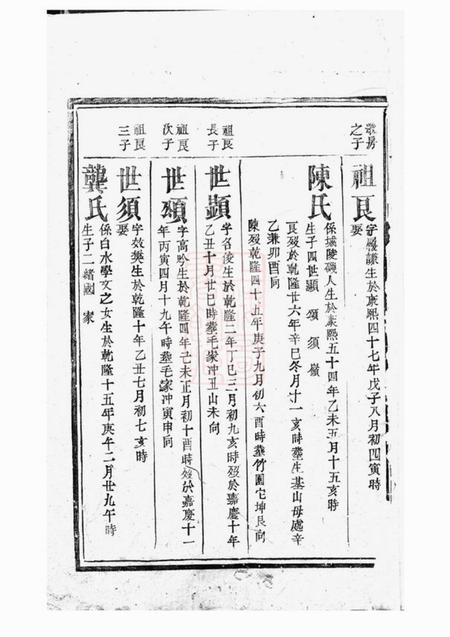 祖艮
字履謙生於康熙四十七年戊子八月初四寅時
娶
陳氏
係城陵磯人生於康熙五十四年乙未五月十五亥時
生子四世顯 頌 須 嶺
艮歿於乾隆廿六年辛巳冬月十一亥時塟生基山母處辛
乙兼卯酉向
陳歿乾隆四十五年庚子九月初六酉時塟竹園它坤艮向
祖艮
長子
世顯
字名後生於乾隆二年丁巳三月初九亥時歿於嘉慶十年
乙丑十月廿巳時塟毛家冲丑山未向
祖艮
次子
世頌
字高吟生於乾隆四年己未正月初十酉時歿於嘉慶十一
年丙寅四月十九午時塟毛家冲寅申向
祖艮
三子
世須
字效樊生於乾隆十年乙丑七月初七亥時
娶
龔氏
係白水學文之女生於乾隆十五年庚午二月廿九午時
生子二緒國 家